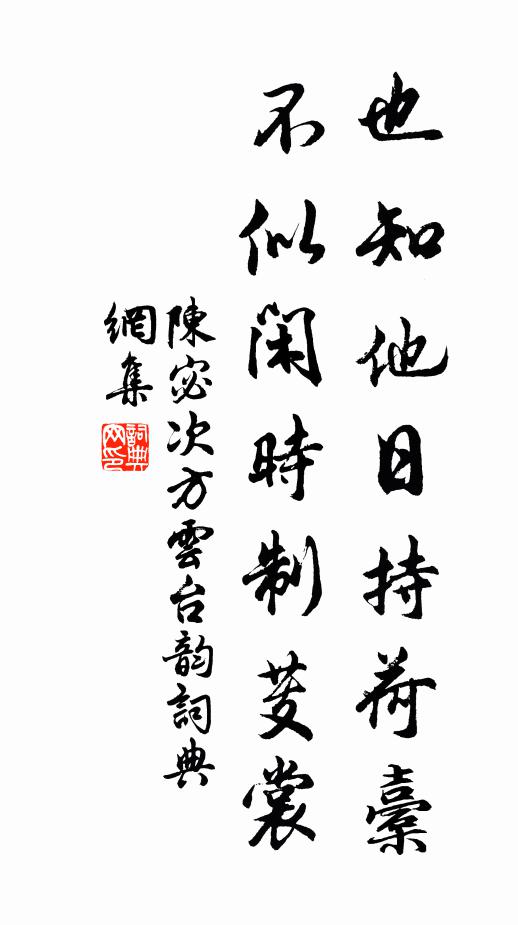 也知他日持荷橐
不似閑時制芰裳
陳宓次方雲台韵詞典
網集
詞典
网印